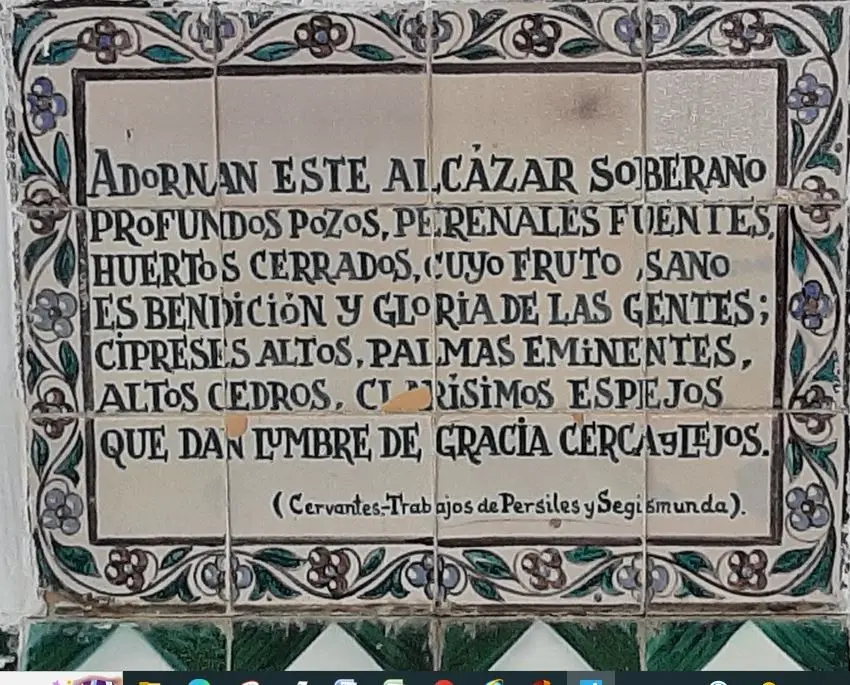 ADORNAN ESTE ALCÁZAR SOBERANO
PROFUNDOS POZOS, PERENALES FUENTES,
HUERTOS CERRADOS, CUYO FRUTO ,SANO
ES BENDICIÓN Y GLORIA DE LAS GENTES;
CIPRESES ALTOS, PALMAS EMINENTES,
ALTOS CEDROS, CLARÍSIMOS ESPEJOS
QUE DAN LUMBRE DE GRACIA CERCA y LEJOS.
(Cervantes-Trabajos de Persiles y Segismunda).